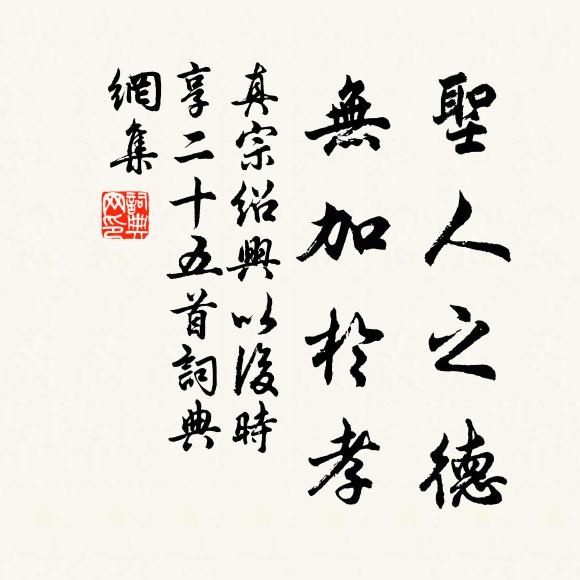 聖人之德
無加於孝
真宗紹興以後時
享二十五首詞典
網集
詞典
网印